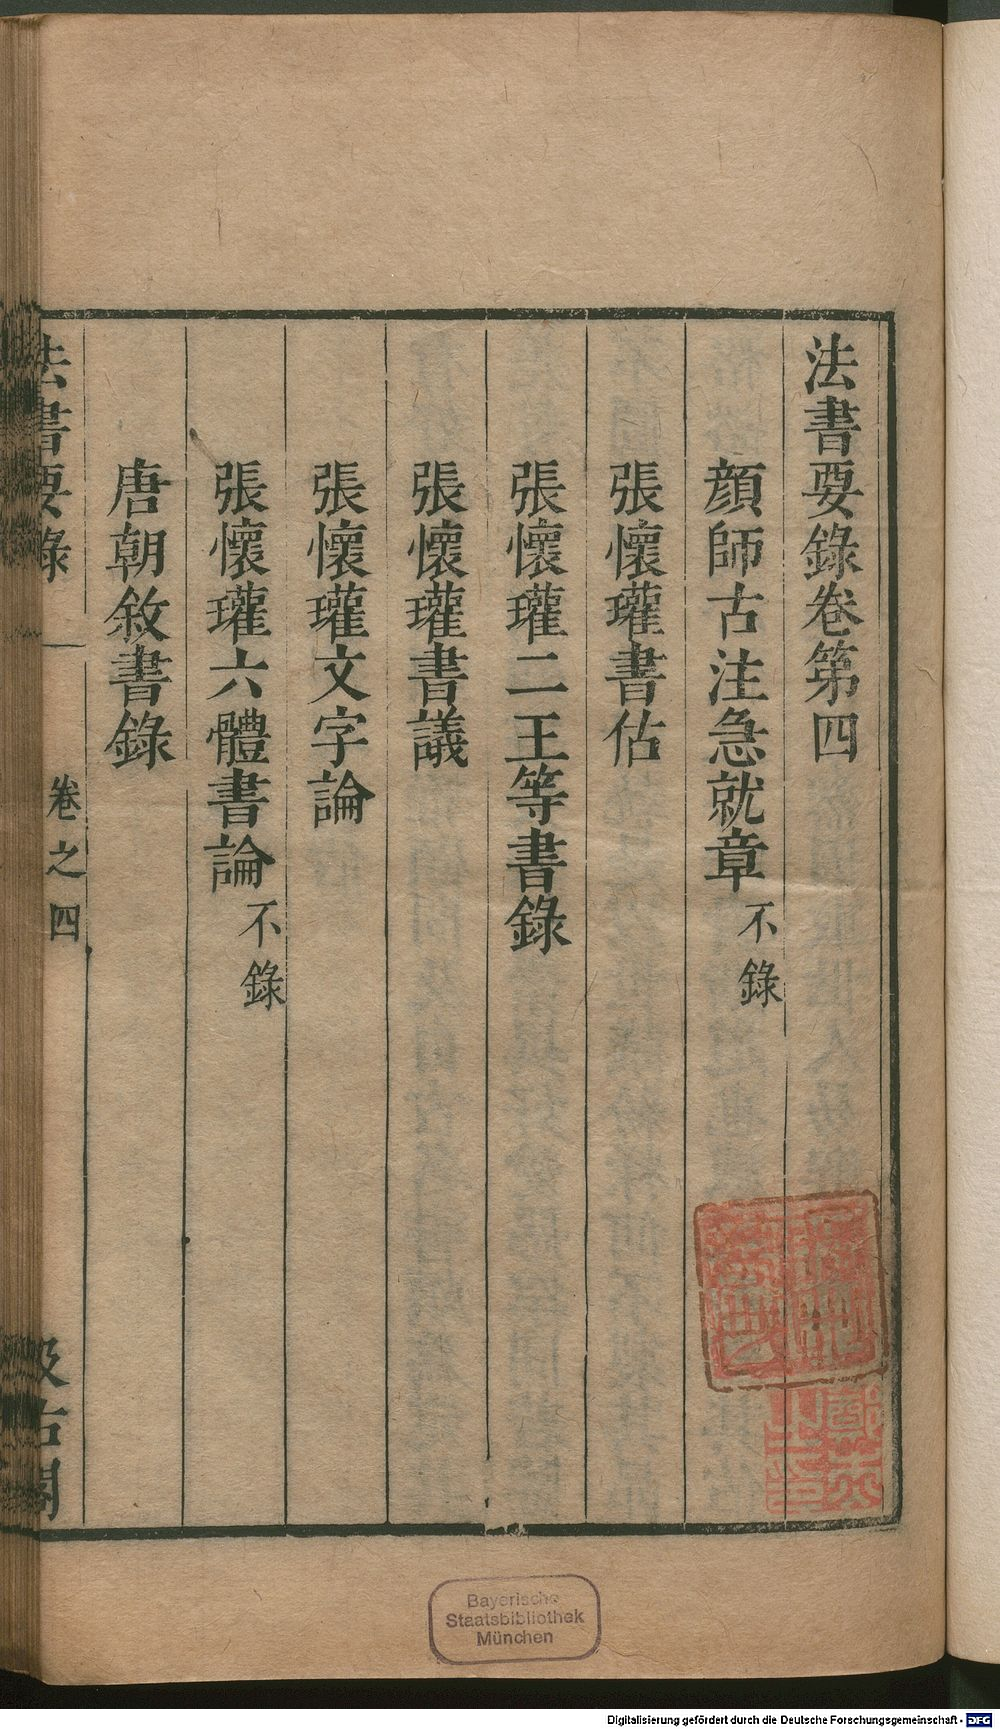 法書要錄卷第四
顏師古注急就章 不錄
張懷瓘書估
張懷瓘二王等書錄
張懷瓘書議
張懷瓘文字論
張懷瓘六體書論 不錄
唐朝敘書錄
法書要錄
卷之四
汲古閣
Bayerische
Staatsbibliothek
München
Digitalisierung gefördert durch die Deutsche Forschungsgemeinschaft - DFG